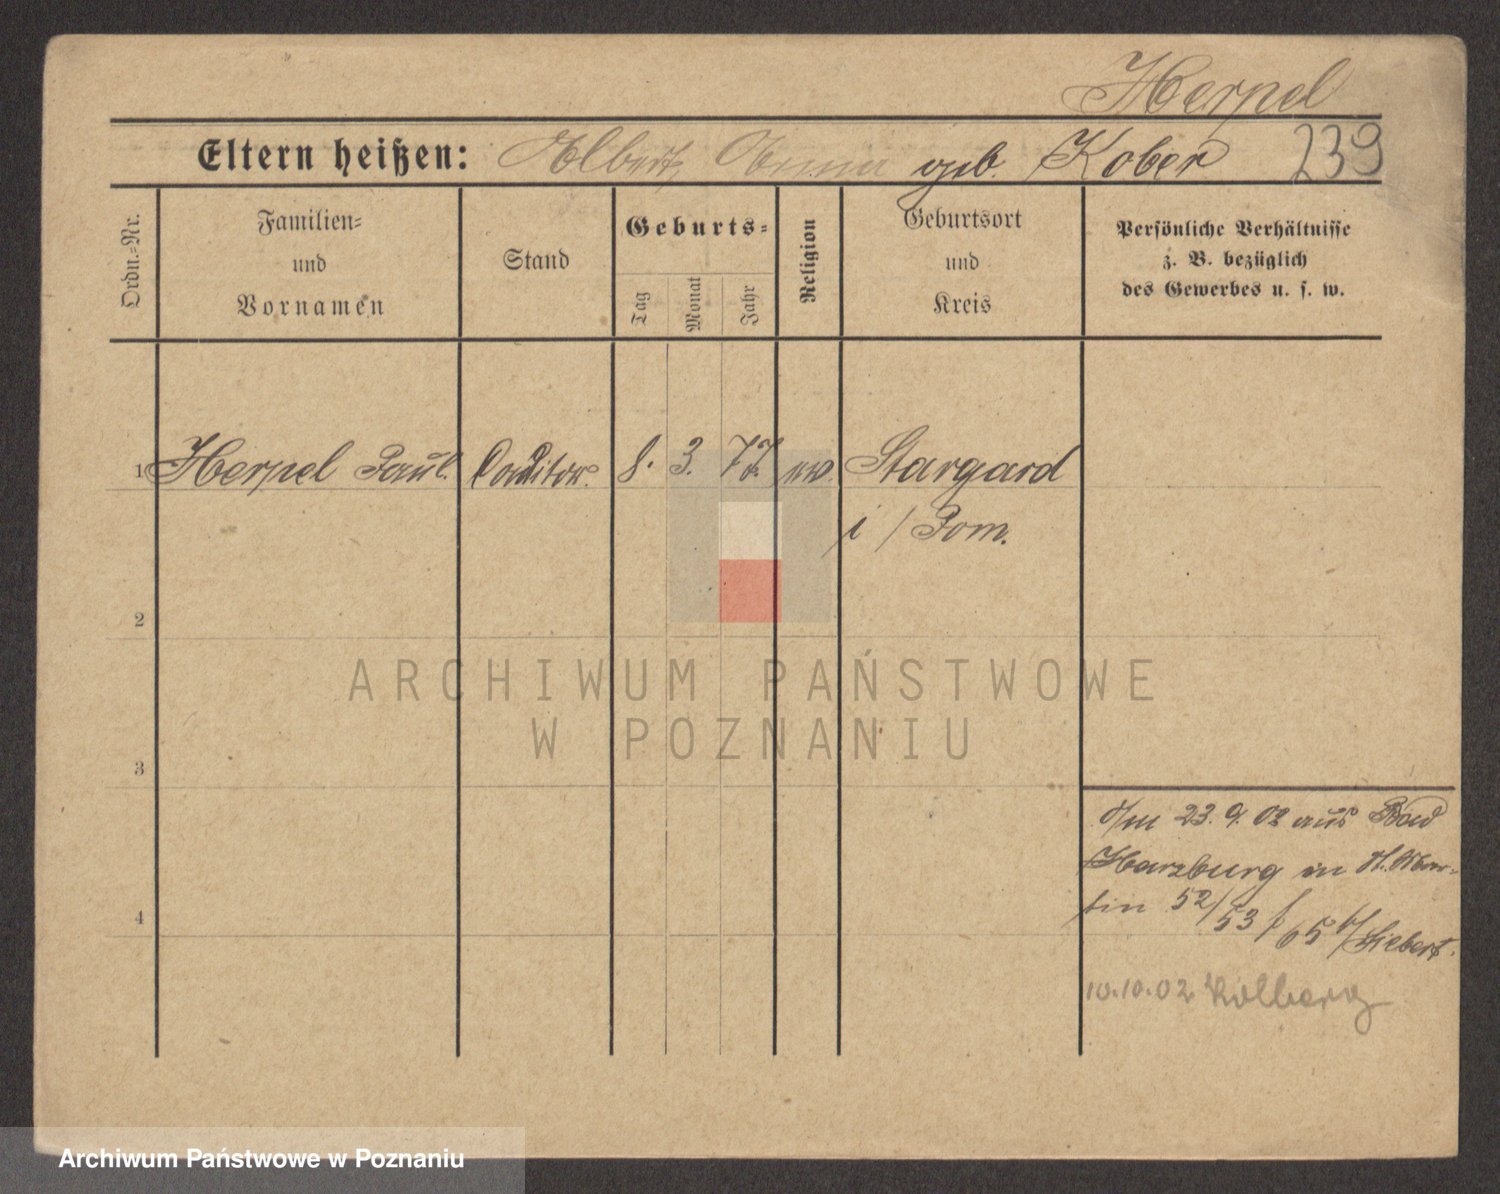 Herpel
Eltern heißen: Albert, geb. Kober 239
Ordn.-Nr.
Familien-
und
Vornamen
Stand
Geburts-
Tag
Monat
Jahr
Religion
Geburtsort
und
Kreis
Persönliche Verhältnisse
z. B. bezüglich
des Gewerbes u. s. w.
1 Herpel Paul. Conditor. 8. 3. 77. ev. Stargard
i/Pom.
2
3
4
ARCHIWUM PAŃSTWOWE
W POZNANIU
23. 9. 02 aus Bad
Harzburg in
tin 52/53 65 b/Siebert.
10.10.02 Kolberg
Archiwum Państwowe w Poznaniu